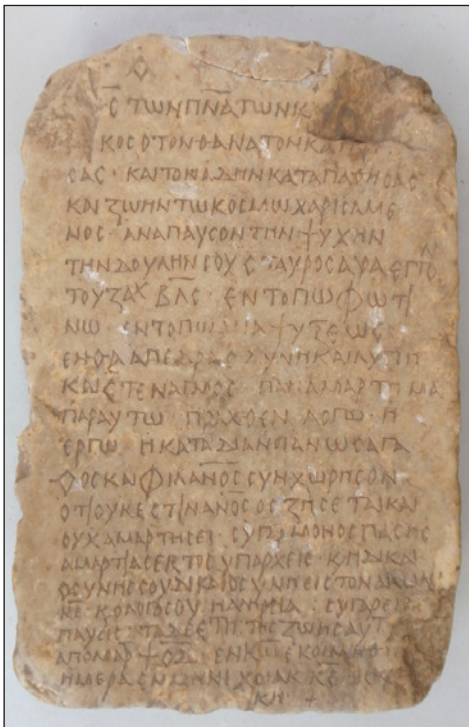 Ϲ̅ ΤΩΝ ΠΝ̅ΑΤΩΝ Κ
ΚΟϹ Ο ΤΟΝ ΘΑΝΑΤΟΝ ΚΑΤ
ϹΑϹ · ΚΑΙ ΤΟΝ ΑΔΗΝ ΚΑΤΑΠΑΤΗϹΑϹ
ΚΑΙ ΖΩΗΝ ΤΩ ΚΟϹΜΩ ΧΑΡΙϹΑΜΕ
ΝΟϹ · ΑΝΑΠΑΥϹΟΝ ΤΗΝ ΨΥΧΗΝ
ΤΗΝ ΔΟΥΛΗΝ ϹΟΥ ϹΤΑΥΡΟϹΑΥΑ
ΤΟΥ ΖΑΧ · ΕΝ ΤΟΠΩ ΦΩΤΙ
ΝΩ ΕΝ ΤΟΠΩ ΑΝΑΨΥΞΕΩϹ
ΕΝΘΑ ΑΠΕΔΡΑϹ ΟΔΥΝΗ ΚΑΙ ΛΥΠΗ
ϹΤΕΝΑΓΜΟϹ · ΠΑΝ ΑΜΑΡΤΗΜΑ
ΠΑΡ ΑΥΤΩ ΠΡΑΧΘΕΝ ΛΟΓΩ · Η
ΕΡΓΩ · Η ΚΑΤΑ ΔΙΑΝΟΙΑΝ ΩϹ ΑΓΑ
ΘΟϹ ΚΑΙ ΦΙΛΑΝΟϹ ϹΥΝΧΩΡΗϹΟΝ
ΟΤΙ ΟΥΚ ΕϹΤΙΝ ΑΝΟϹ ΟϹ ΖΗϹΕΤΑΙ ΚΑΙ
ΟΥΧ ΑΜΑΡΤΗϹΕΙ · ϹΥ ΜΟΝΟϹ ΠΑϹΗϹ
ΑΜΑΡΤΙΑϹ ΕΚΤΟϹ ΥΠΑΡΧΕΙϹ · Κ Η ΔΙΚΑΙ
ΟϹΥΝΗ ϹΟΥ ΔΙΚΑΙΟϹΥΝΗ ΕΙϹ ΤΟΝ ΑΙΩΝΑ
ΚΕ · Κ Ο ΛΟΓΟϹ ϹΟΥ Η ΑΛΗΘΕΙΑ : ϹΥ ΓΑΡ ΕΙ
ΠΑΥϹΙϹ · ΤΑ ΔΕ ΕΤΗ ΤΗϹ ΖΩΗϹ ΑΥΤ
ΑΠΟ ΜΑΡ ΕΚΟΙΜΗΘ
ΗΜΕΡΑ ΕΝ ΜΗΝΙ ΧΟΙΑΚ ΚΕ
ΚΗ +